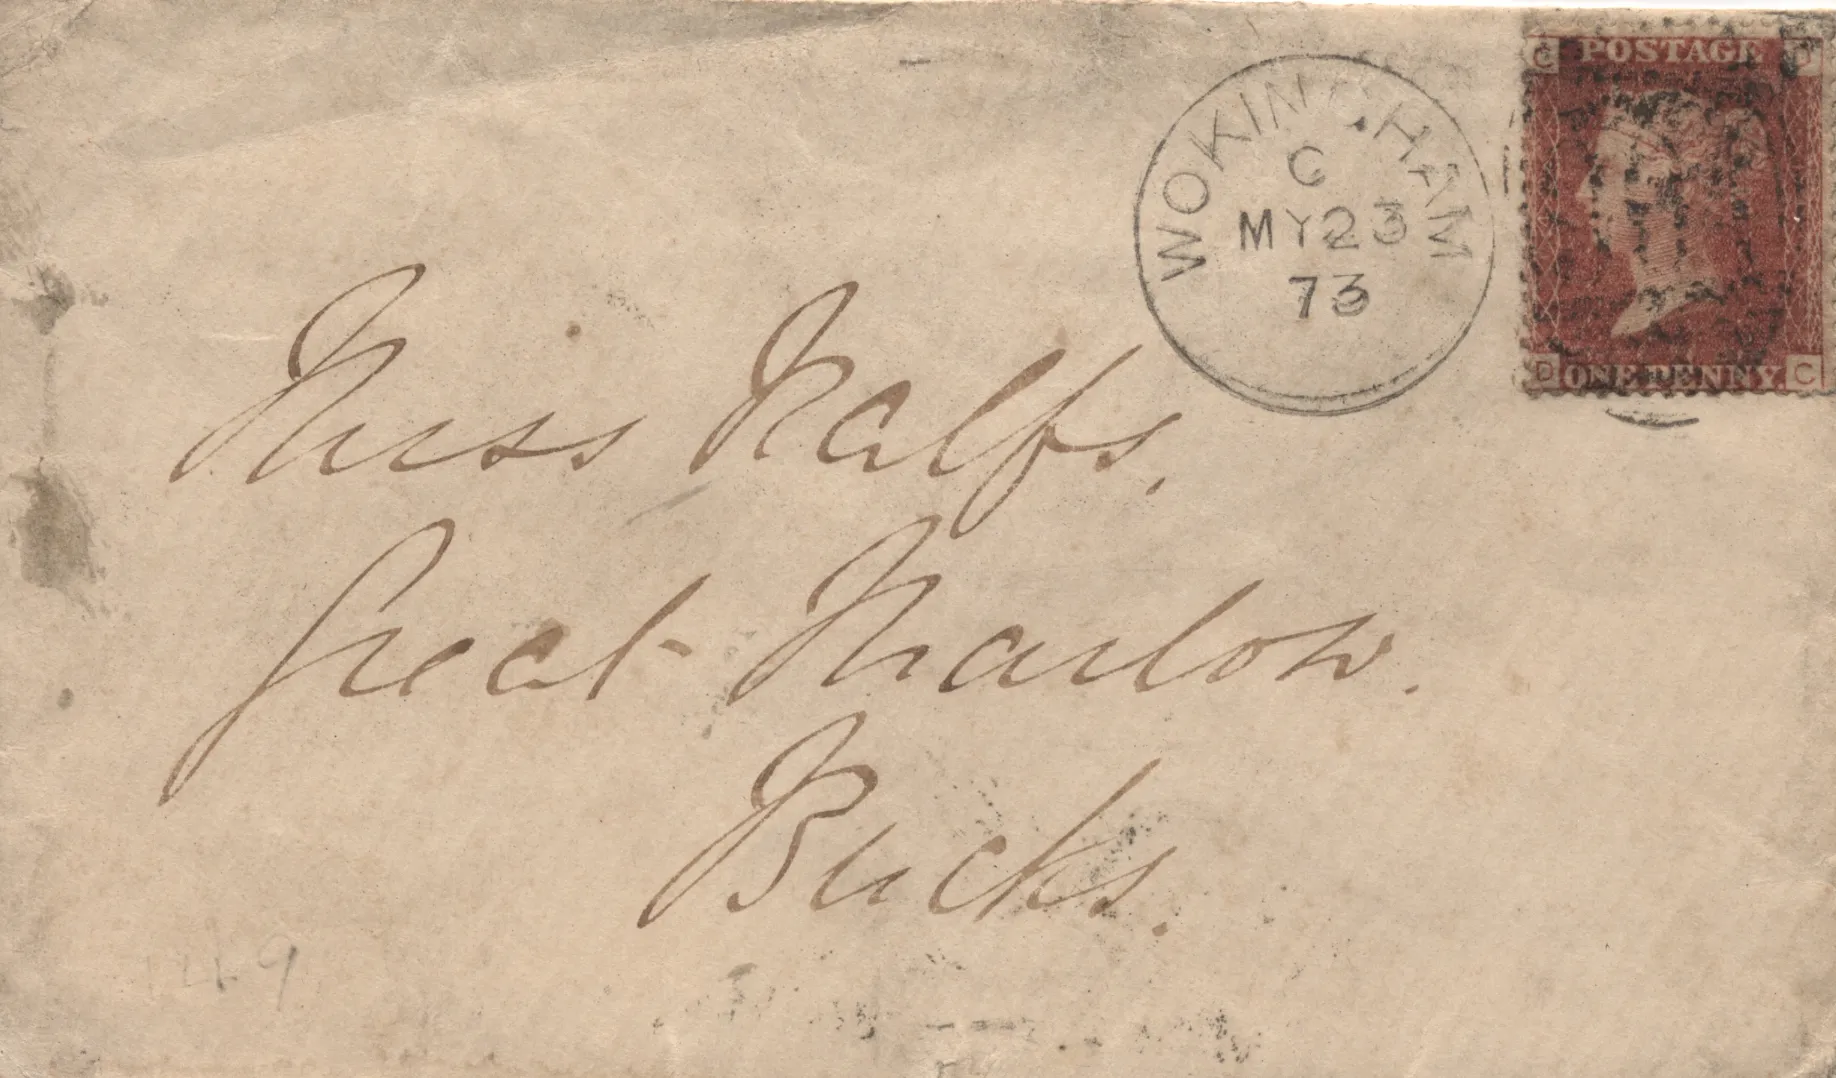 C POSTAGE D
WOKINGHAM
C
MY 23
73
D ONE PENNY. C
Miss Ralfs.
Great Marlow.
Bucks.